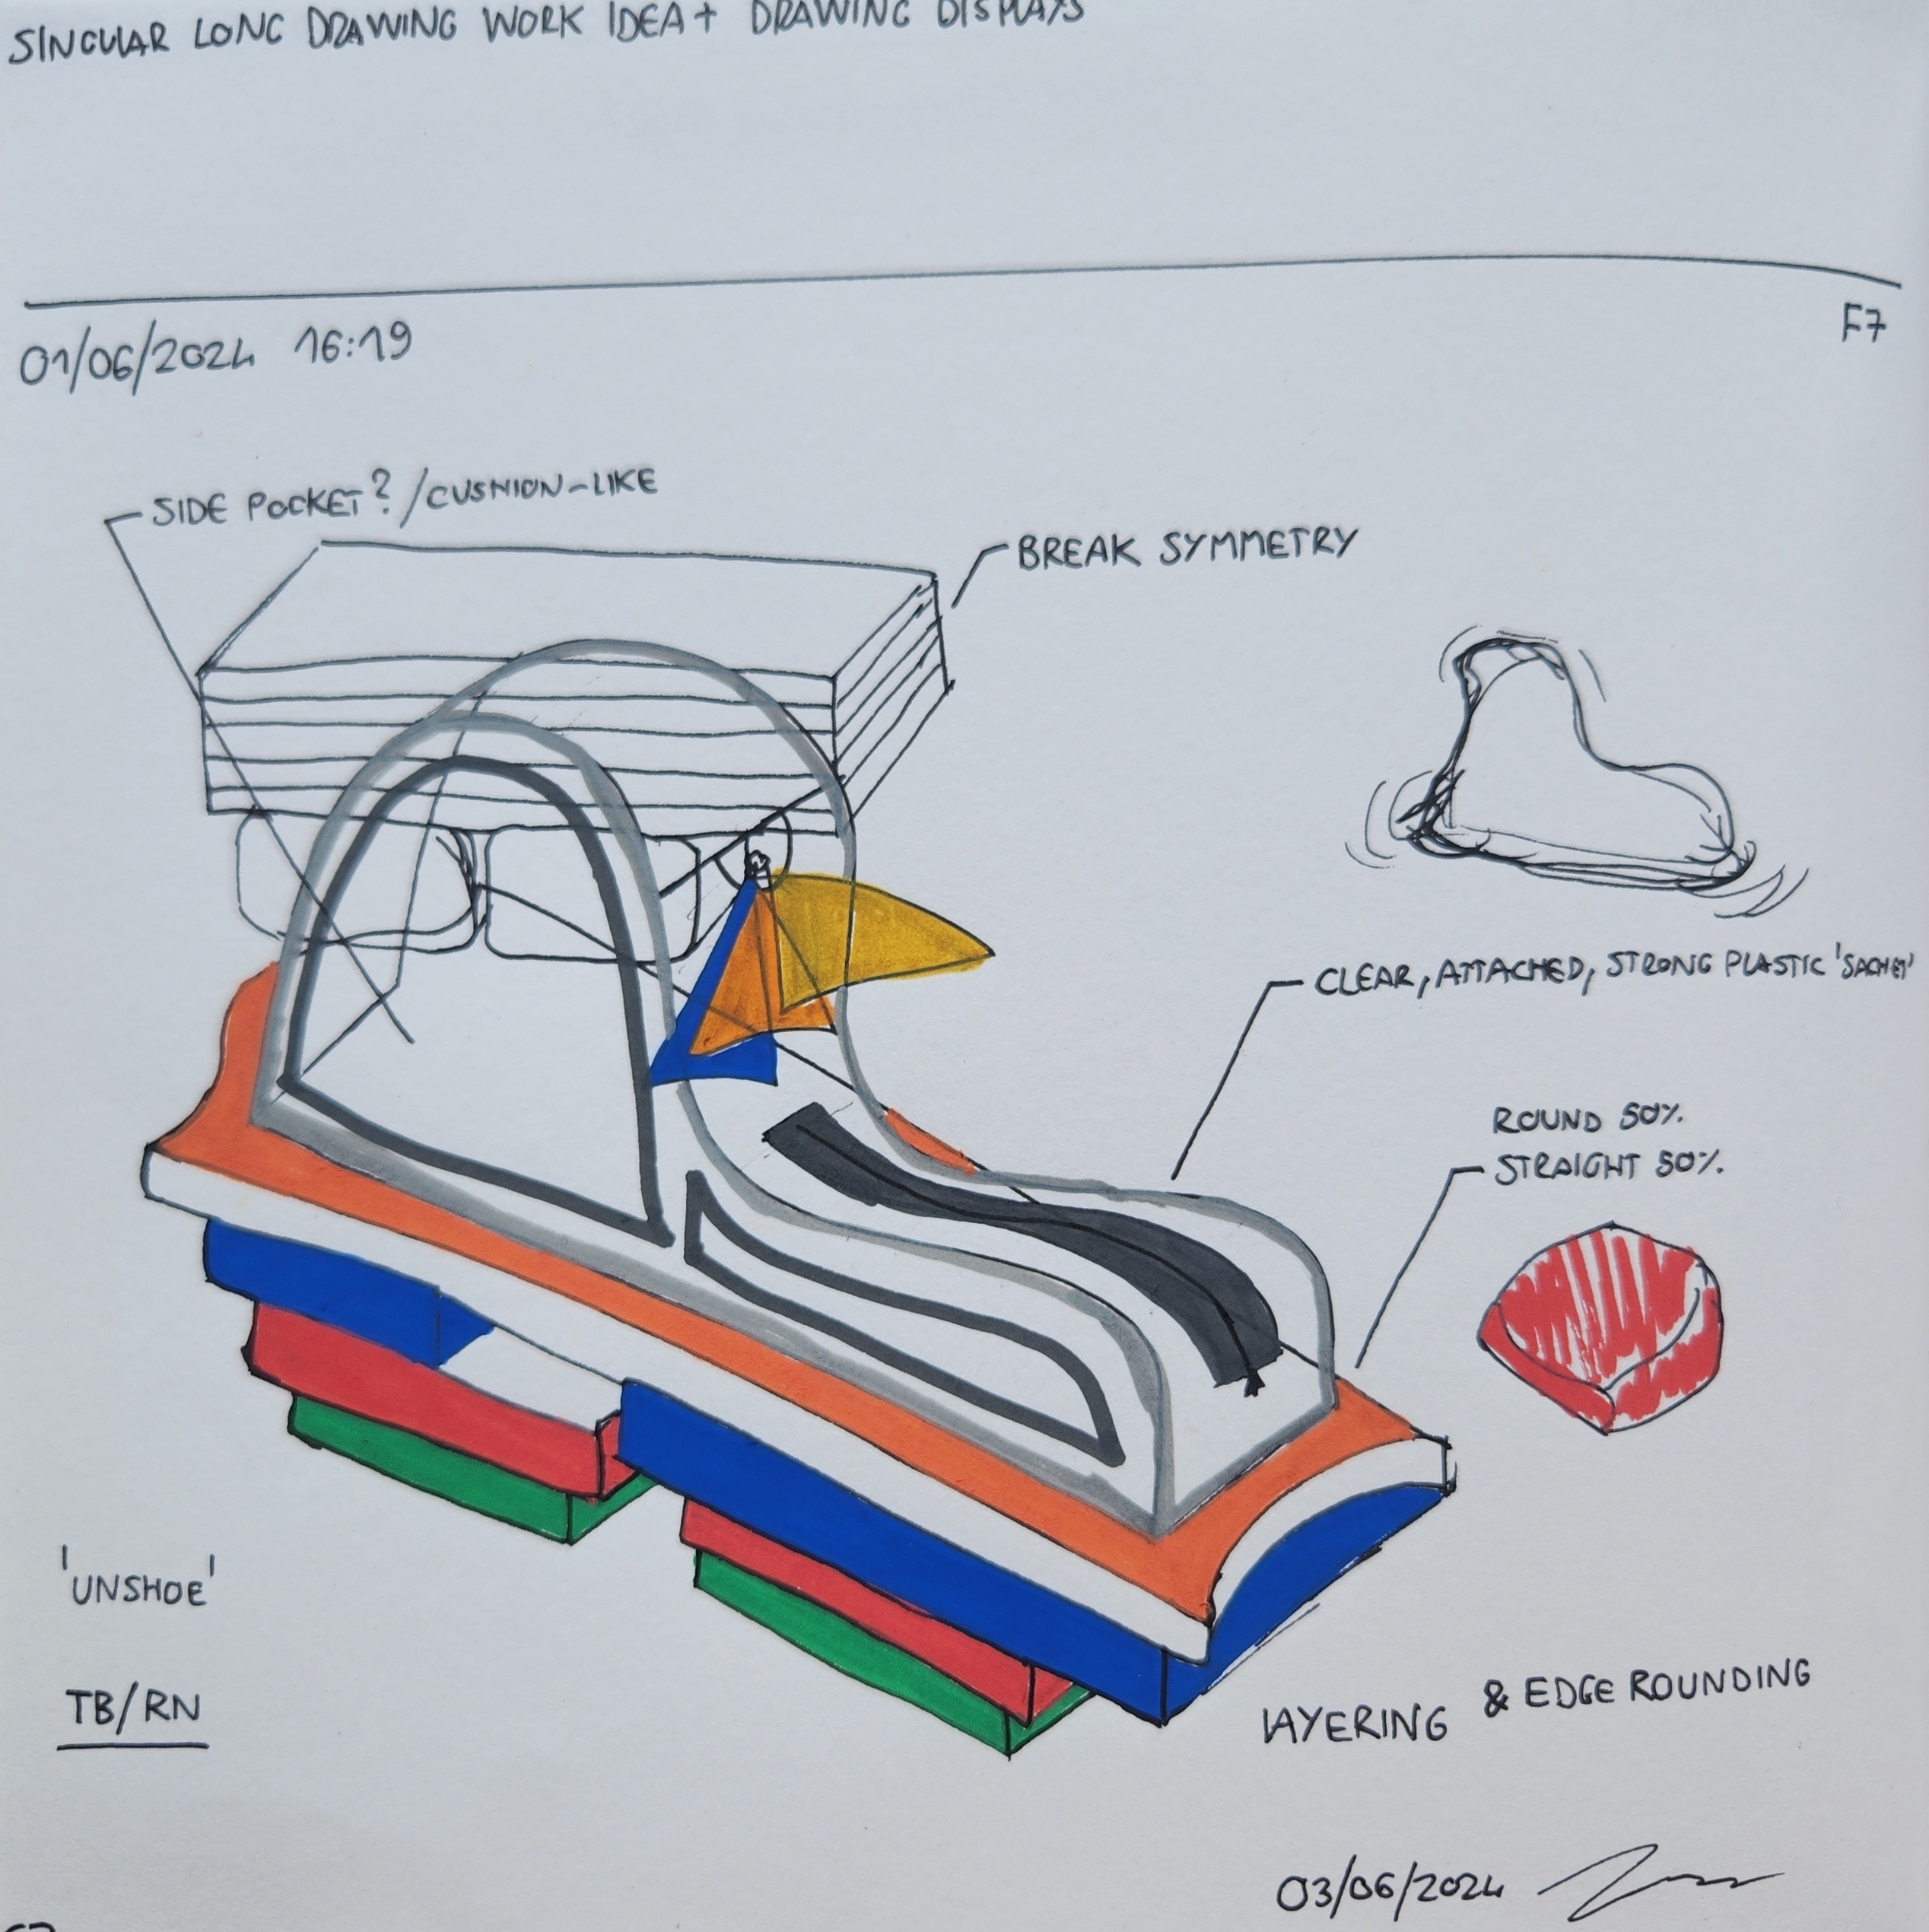 SINGULAR LONG DRAWING WORK IDEA + DRAWING DISPLAYS
01/06/2024 16:19
F7
SIDE POCKET? / CUSHION-LIKE
BREAK SYMMETRY
CLEAR, ATTACHED, STRONG PLASTIC 'SACHET'
ROUND 50%
STRAIGHT 50%
'UNSHOE'
TB/RN
LAYERING & EDGE ROUNDING
03/06/2024